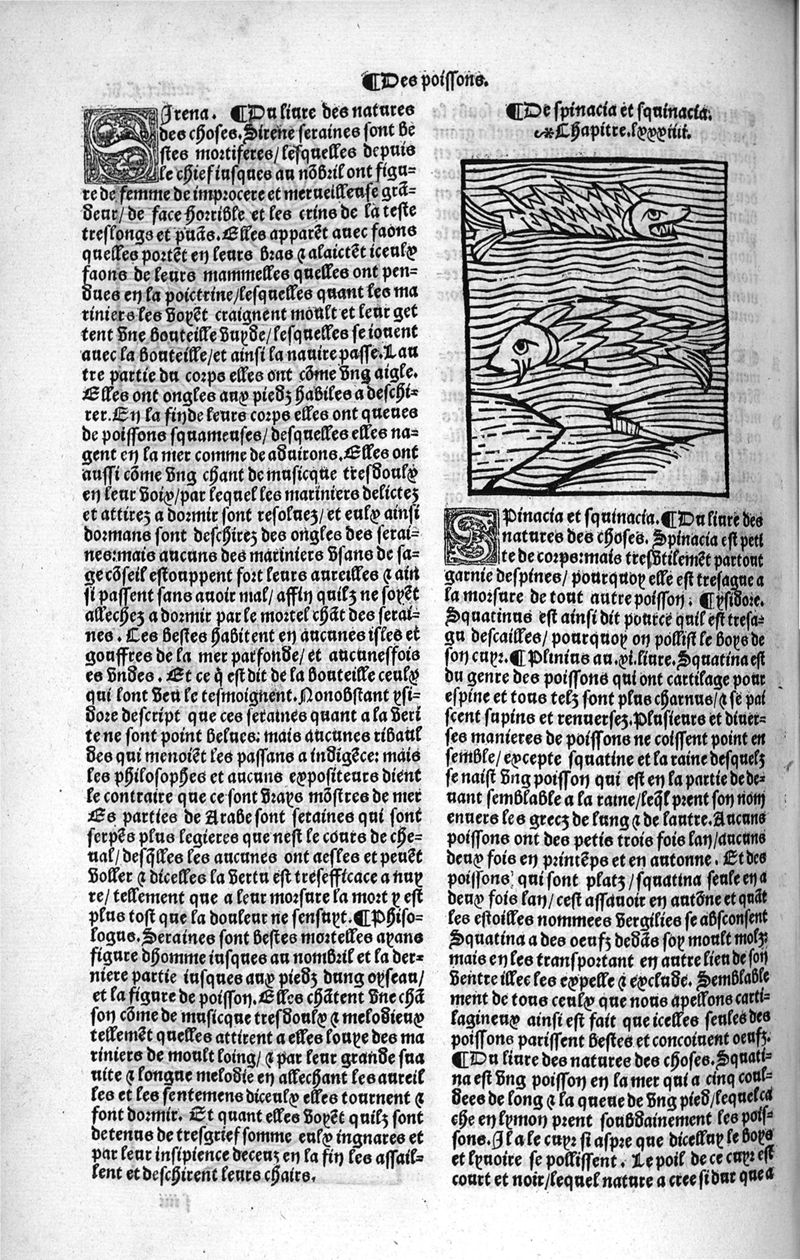 ¶Des poissons.
SIrena. ¶Du liure des natures
des choses. Sirene seraines sont be
stes mortiferes/lesquelles depuis
le chief iusques au nõbril ont figu-
re de femme de improcere et merueilleuse grã-
deur/ de face horrible et les crins de la teste
treslongs et puãs. Elles apparẽt auec faons
quelles portẽt en leurs bras ⁊ alaictẽt iceulx
faons de leurs mammelles quelles ont pen-
dues en la poictrine/lesquelles quant les ma
riniers les voyẽt craignent moult et leur get
tent vne bouteille vuyde/lesquelles se iouent
auec la bouteille/et ainsi la nauire passe. Lau
tre partie du corps elles ont cõme vng aigle.
Elles ont ongles aux piedz habiles a deschi-
rer. En la fin de leurs corps elles ont queues
de poissons squameuses/ desquelles elles na-
gent en la mer comme de aduirons. Elles ont
aussi cõme vng chant de musicque tresdoulx
en leur voix/par lequel les mariniers delictez
et attirez a dormir sont resoluez/ et eulx ainsi
dormans sont deschirez des ongles des serai-
nes: mais aucuns des mariniers vsans de sa-
ge cõseil estouppent fort leurs aureilles ⁊ ain
si passent sans auoir mal/ affin quilz ne soyẽt
allechez a dormir par le mortel chãt des serai-
nes. Ces bestes habitent en aucunes isles et
gouffres de la mer parfonde/ et aucunesfois
es vndes. Et ce q̃ est dit de la bouteille ceulx
qui lont veu le tesmoignent. Nonobstant ysi-
dore descript que ces seraines quant a la veri
te ne sont point belues: mais aucunes ribaul
des qui menoiẽt les passans a indigẽce: mais
les philosophes et aucuns expositeurs dient
le contraire que ce sont vrays mõstres de mer
Es parties de Arabe sont seraines qui sont
serpẽs plus legieres que nest le cours de che-
ual/ desq̃lles les aucunes ont aesles et peuẽt
voller ⁊ dicelles la vertu est tresefficace a nuy
re/ tellement que a leur morsure la mort y est
plus tost que la douleur ne sensuyt. ¶Phisio-
logus. Seraines sont bestes mortelles ayans
figure dhomme iusques au nombril et la der-
niere partie iusques aux piedz dung oyseau/
et la figure de poisson. Elles chãtent vne chã
son cõme de musicque tresdoulx ⁊ melodieux
tellemẽt quelles attirent a elles louye des ma
riniers de moult loing/ ⁊ par leur grande sua
uite ⁊ longue melodie en allechant les aureil
les et les sentemens diceulx elles tournent ⁊
font dormir. Et quant elles voyẽt quilz sont
detenus de tresgrief somme eulx ingnares et
par leur insipience deceuz en la fin les assail-
lent et deschirent leurs chairs.
¶De spinacia et squinacia.
Chapitre.lxxxiiii.
SPinacia et squinacia. ¶Du liure des
natures des choses. Spinacia est peti
te de corps: mais tresvtilemẽt partout
garnie despines/ pourquoy elle est tresague a
la morsure de tout autre poisson. ¶ysidore.
Squatinus est ainsi dit pource quil est tresa-
gu descailles/ pourquoy on pollist le boys de
son cuyr. ¶Plinius au.xi.liure. Squatina est
du genre des poissons qui ont cartilage pour
espine et tous telz sont plus charnus/ ⁊ se pai
scent supins et renuersez. Plusieurs et diuer-
ses manieres de poissons ne coissent point en
semble/ excepte squatine et la raine desquelz
se naist vng poisson qui est en la partie de de-
uant semblable a la raine/ leq̃l prent son nom
enuers les grecz de lung ⁊ de lautre. Aucuns
poissons ont des petis trois fois lan/aucuns
deux fois en printẽps et en autonne. Et des
poissons qui sont platz/ squatina seule en a
deux fois lan/ cest assauoir en autõne et quãt
les estoilles nommees vergilies se absconsent
Squatina a des oeufz dedãs soy moult molz:
mais en les transportant en autre lieu de son
ventre illec les expelle ⁊ exclude. Semblable
ment de tous ceulx que nous apellons carti-
lagineux ainsi est fait que icelles seules des
poissons parissent bestes et concoiuent oeufz.
¶Du liure des natures des choses. Squati-
na est vng poisson en la mer qui a cinq coul-
dees de long ⁊ la queue de vng pied/lequel ca
che en lymon prent soubdainement les pois-
sons. Il a le cuyr si aspre que dicelluy le boys
et lyuoire se pollissent. Le poil de ce cuyr est
court et noir/lequel nature a cree si dur que a